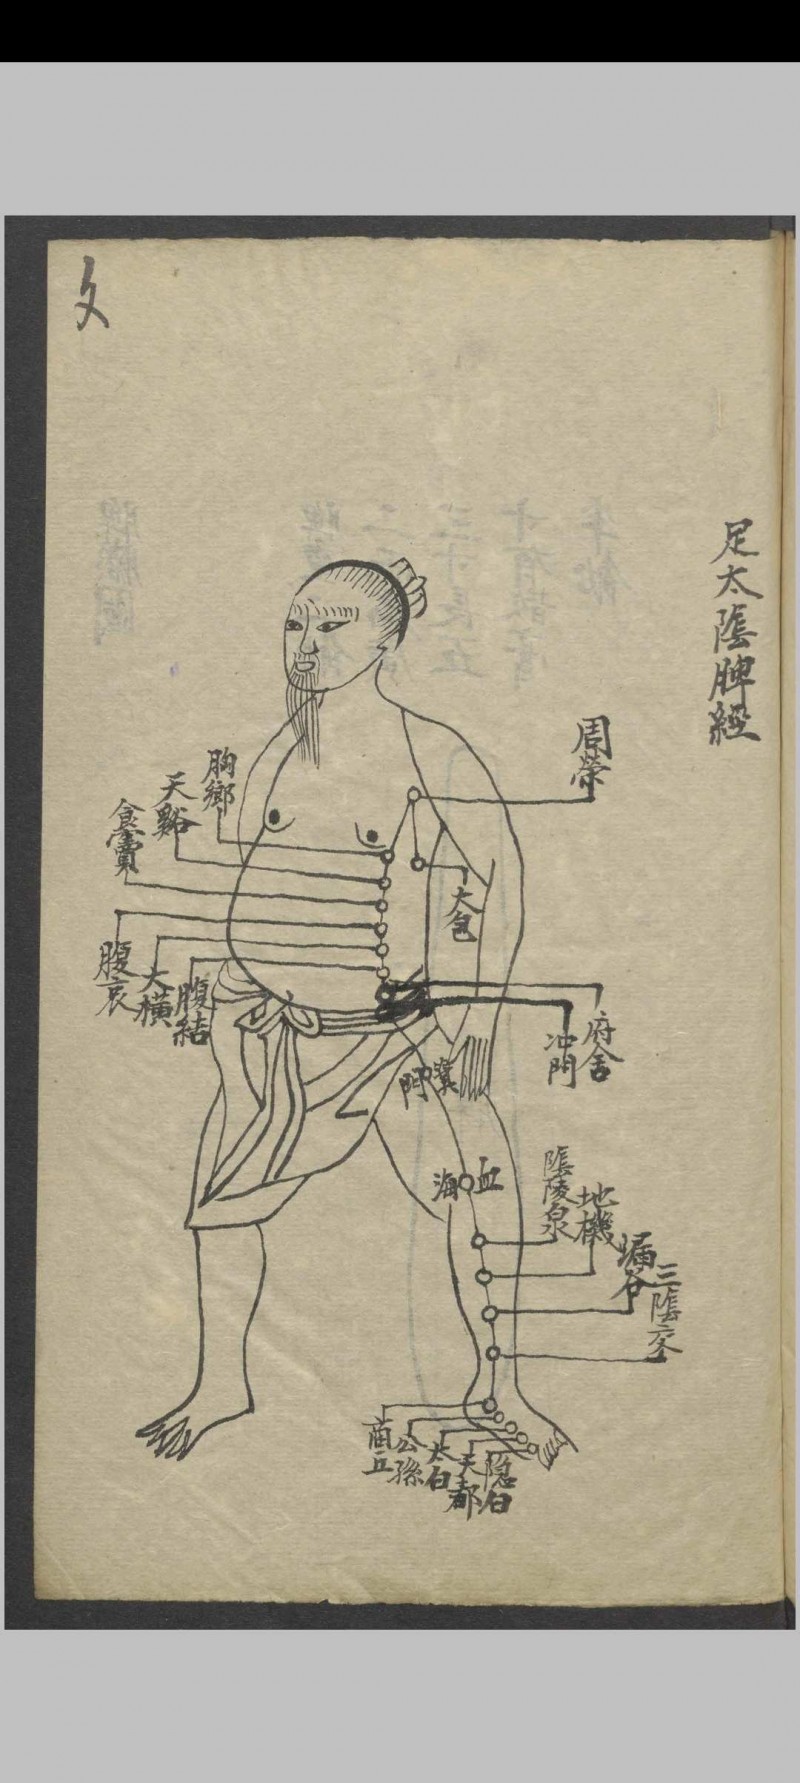 足太陰脾經
周榮
胸鄉
天谿
食竇
大包
腹哀
大橫
腹結
府舍
冲門
箕門
血海
陰陵泉
地機
漏谷
三陰交
商丘
公孫
太白
大都
隐白